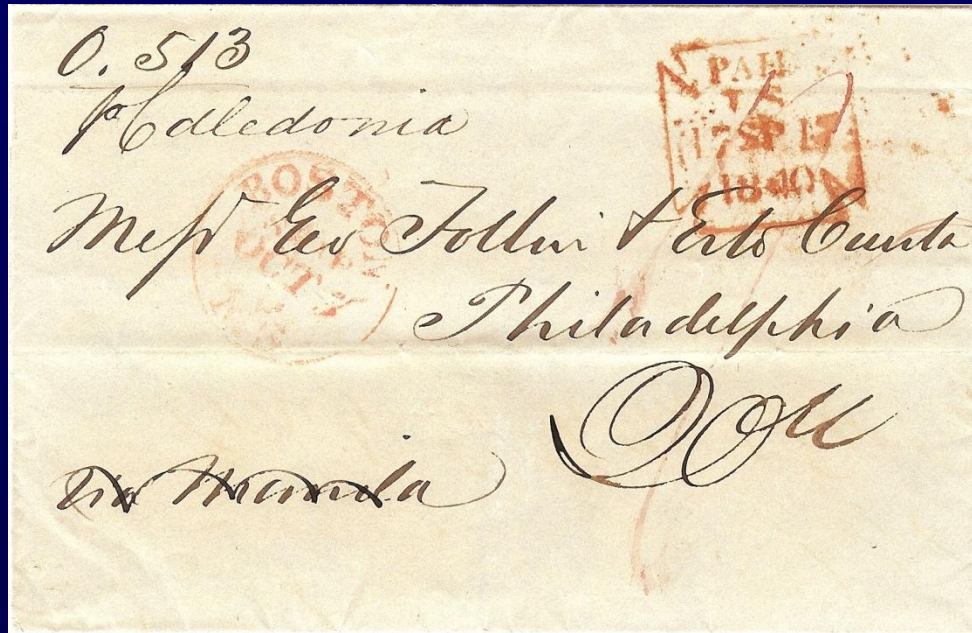 O. 513
p Caledonia
PAID
17 SP 17
1840
BOSTON
OCT
Mess Geo Follin &
Philadelphia
via Manila